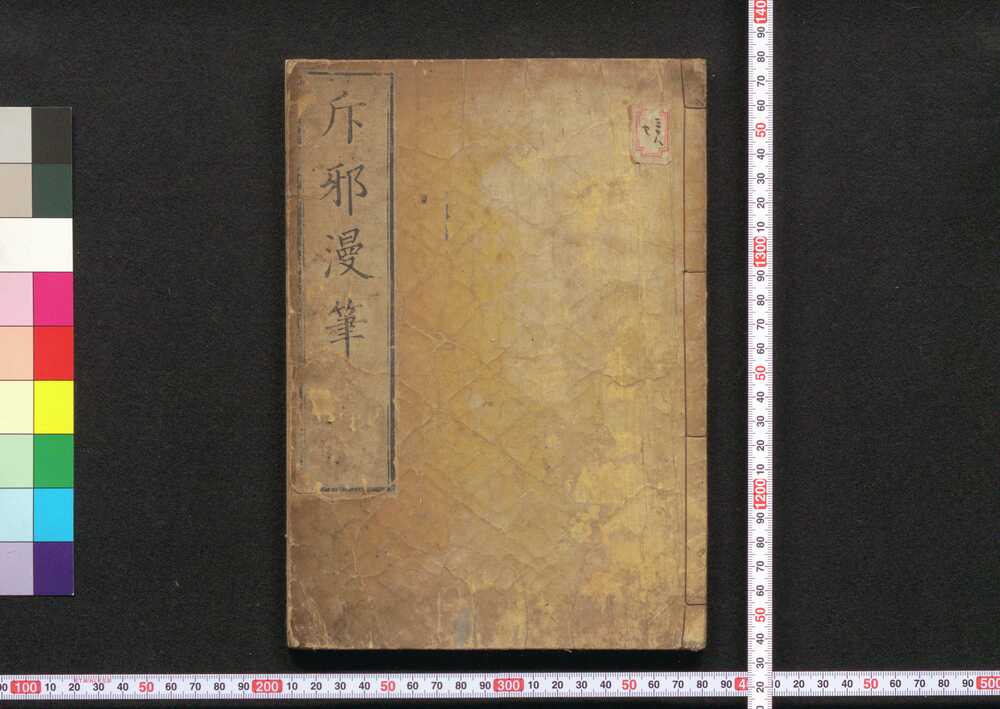 斥邪漫筆
140
90
80
70
60
50
40
30
20
10
1300
90
80
70
60
50
40
30
20
10
1200
90
80
70
60
50
40
30
20
100 10 20 30 40 50 60 70 80 90 200 10 20 30 40 50 60 70 80 90 300 10 20 30 40 50 60 70 80 90 4 20 30 40 50 60 70 80 90 500